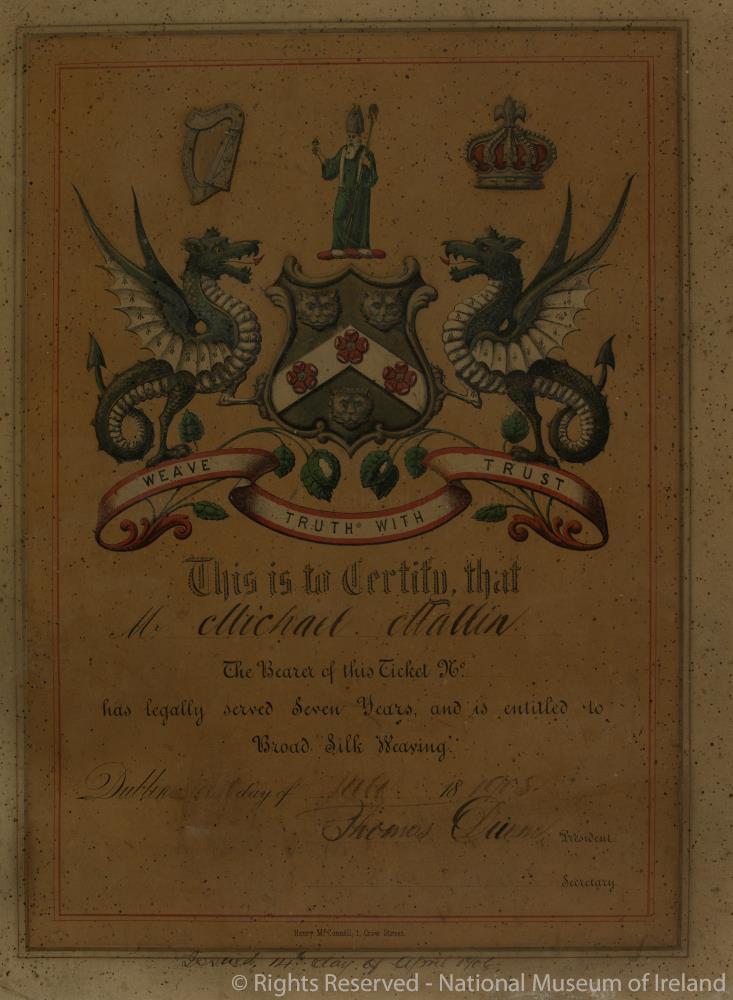 WEAVE
TRUTH WITH
TRUST
This is to Certify, that
Mr. Michael Mallin
The Bearer of this Ticket No.
has legally served Seven Years, and is entitled to
Broad Silk Weaving.
Dublin day of 18
Thomas President
Secretary
Henry McConnell, 1, Crow Street.
Issued 14th day of April
© Rights Reserved - National Museum of Ireland